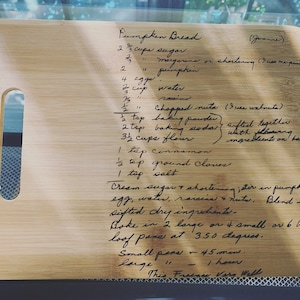 Pumpkin Bread (Jeanie)
2 2/3 cups sugar
2/3 " margarine or shortening (I use
2 " pumpkin
4 eggs
2/3 cup water
2/3 " raisins
2/3 " chopped nuts (I use walnuts)
1/2 tsp baking powder } sifted together
2 tsp baking soda with
3 1/3 cups flour ingredients
1 tsp cinnamon
1/2 tsp ground cloves
1 tsp salt
Cream sugar & shortening, stir in pumpkin
egg, water, raisins & nuts. Blend
sifted dry ingredients.
Bake in 2 large or 4 small or 6
loaf pans at 350 degrees.
Small pans - 45 min.
Large " - 1 hour
This Freezes Very Well